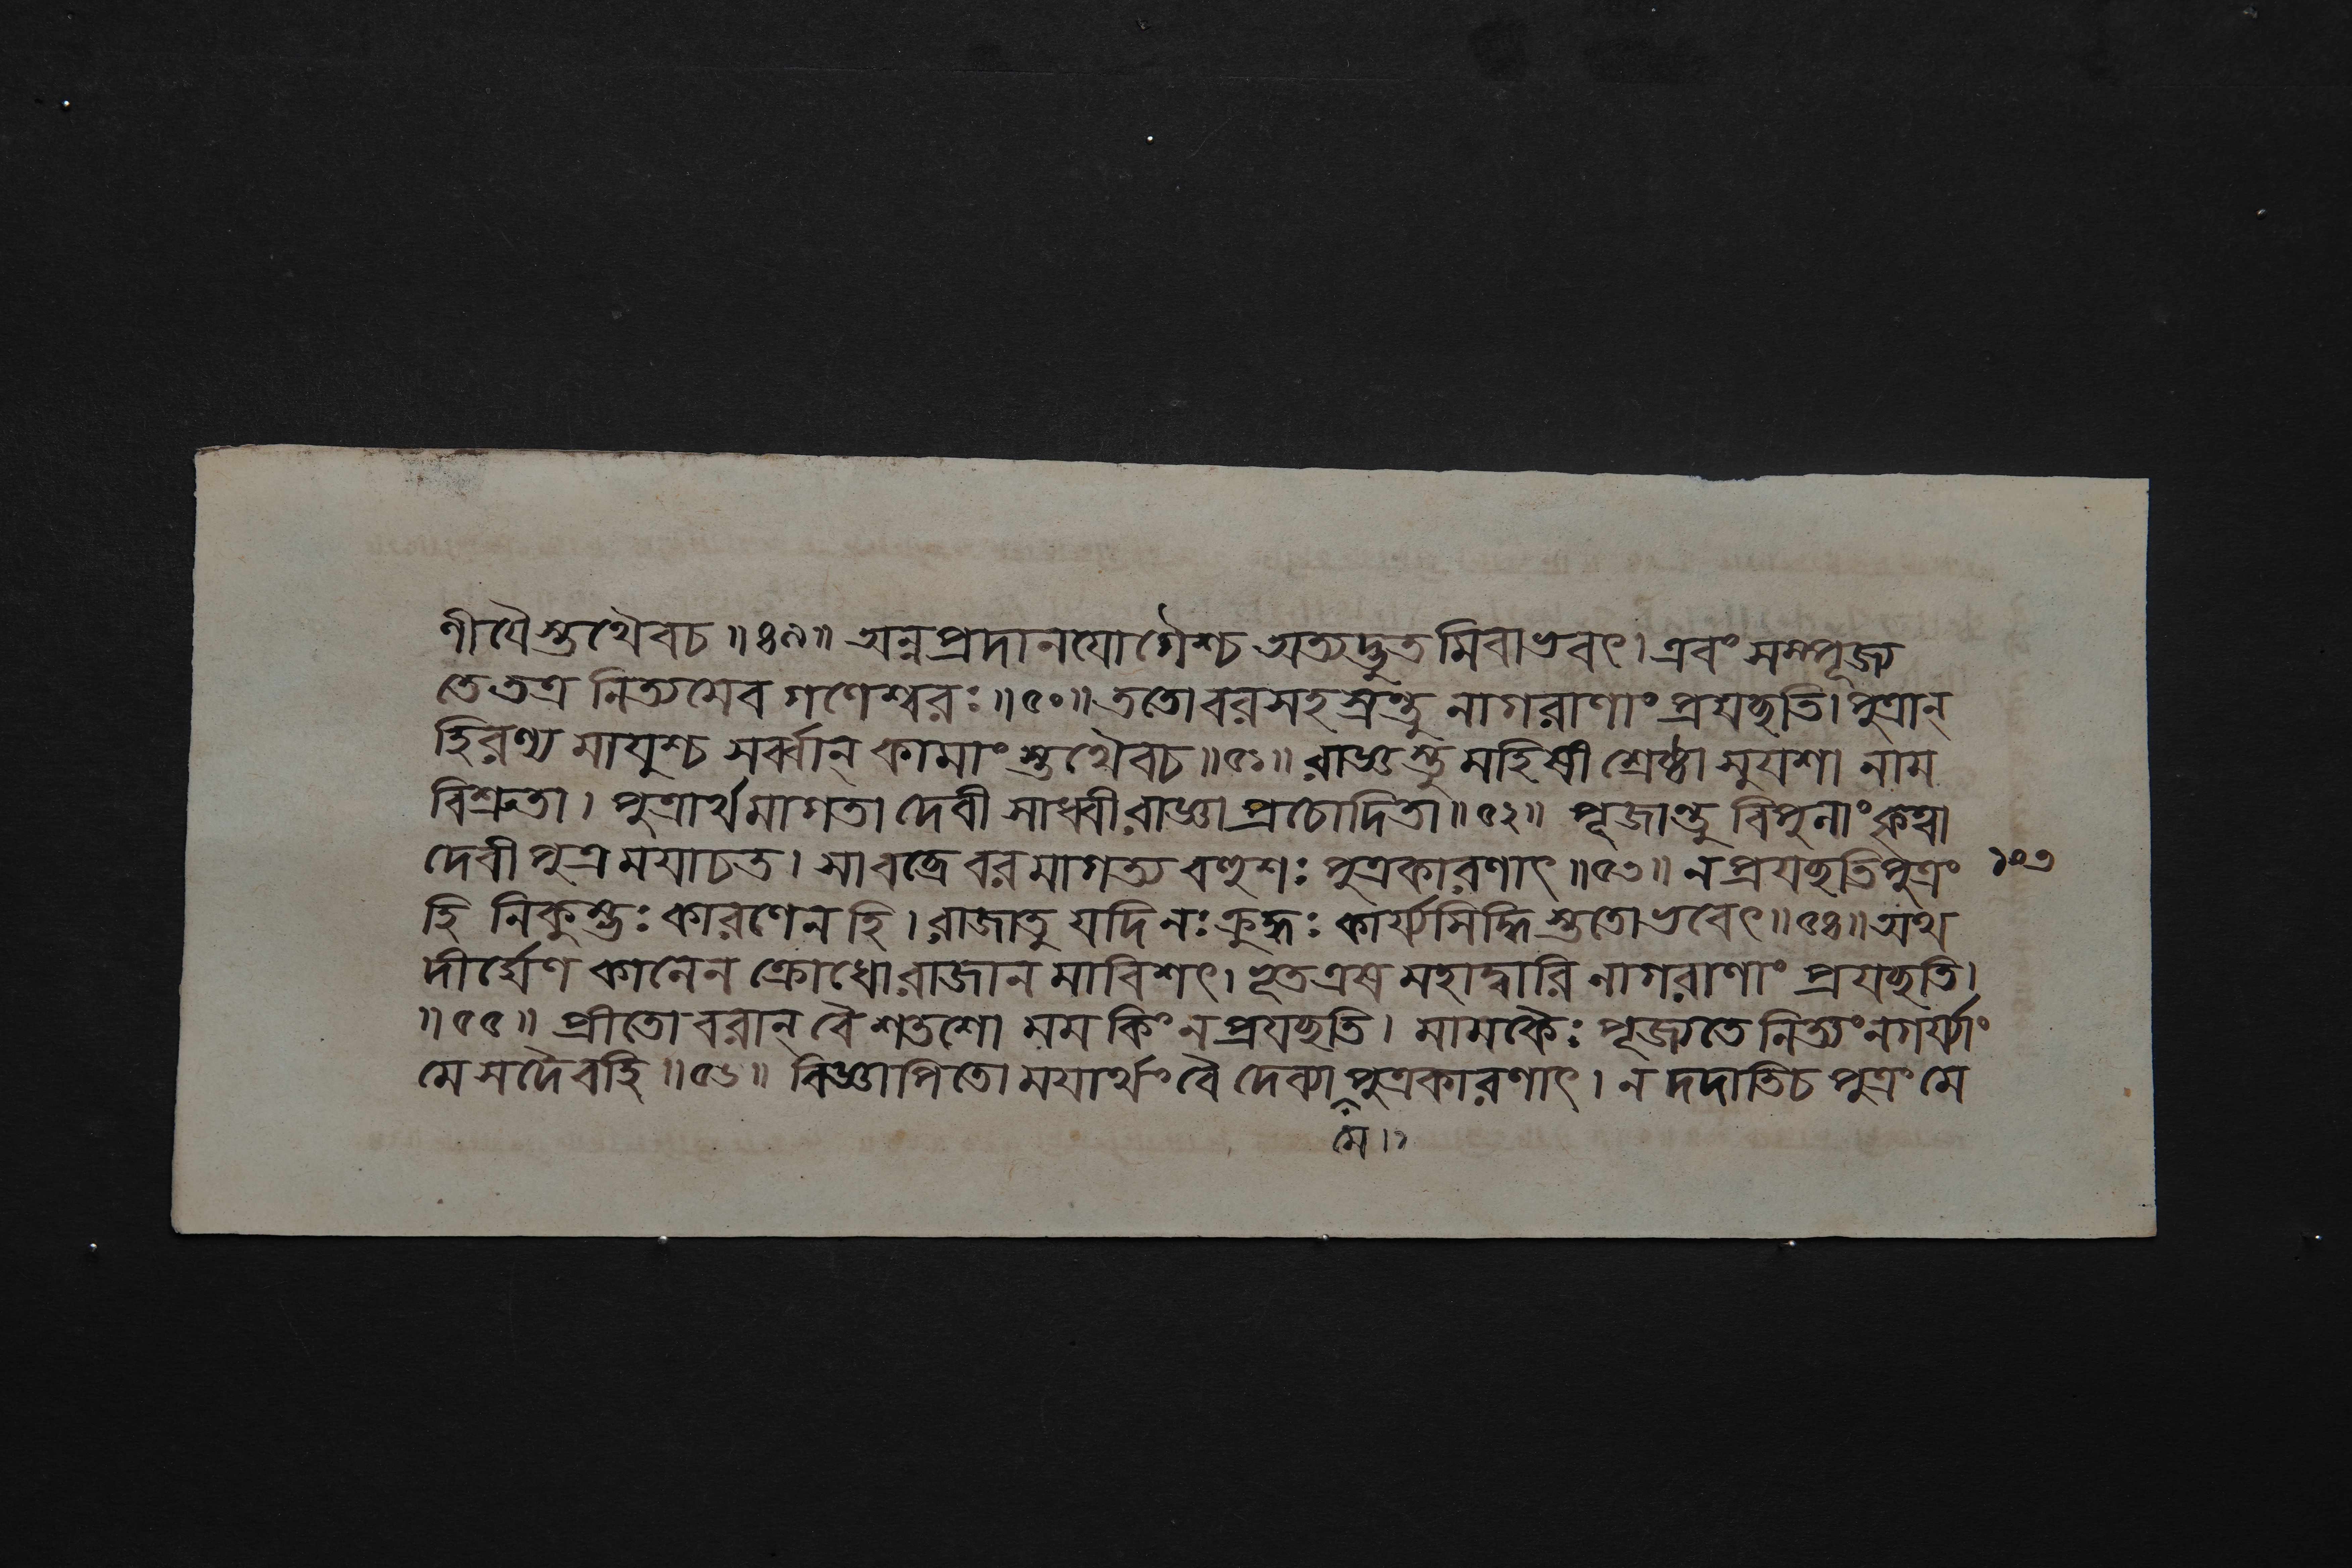 ণীযৈস্তথৈবচ ॥ ৪৯॥ অন্নপ্রদানযোগৈশ্চ অত্যদ্ভুতমিবাভবৎ। এবং সম্পূজ্য
তে তত্র নিত্যমেব গণেশ্বরঃ ॥৫০॥ ততো বরসহস্রন্তু নাগরাণাং প্রযচ্ছতি। পুত্রান্
হিরণ্য মাযুশ্চ সর্ব্বান্ কামাং স্তথৈবচ ॥৫১॥ রাজ্ঞস্তু মহিষী শ্রেষ্ঠা সুযশা নাম
বিশ্রুতা। পুত্রার্থমাগতা দেবী সাধ্বী রাজ্ঞা প্রচোদিতা ॥৫২॥ পূজান্তু বিপুলাং কৃত্বা
দেবী পুত্র মযাচত। সা বব্রে বর মাগত্য বহুশঃ পুত্রকারণাৎ ॥৫৩॥ ন প্রযচ্ছতি পুত্রং
১০৩
হি নিকুম্ভঃ কারণেন হি। রাজা তু যদি নঃ ক্রুদ্ধঃ কার্য্যসিদ্ধি স্ততো ভবেৎ ॥৫৪॥ অথ
দীর্ঘেণ কালেন ক্রোধো রাজান মাবিশৎ। ভূত এষ মহাদ্বারি নাগরাণাং প্রযচ্ছতি।
॥ ৫৫ ॥ প্রীতো বরান্ বৈ শতশো মম কিং ন প্রযচ্ছতি। মামকৈঃ পূজ্যতে নিত্যং নগর্য্যাং
মে সদৈবহি ॥৫৬॥ বিজ্ঞাপিতো মযার্থং বৈ দেব্যা পুত্রকারণাৎ। ন দদাতি চ পুত্রং মে
মে।১